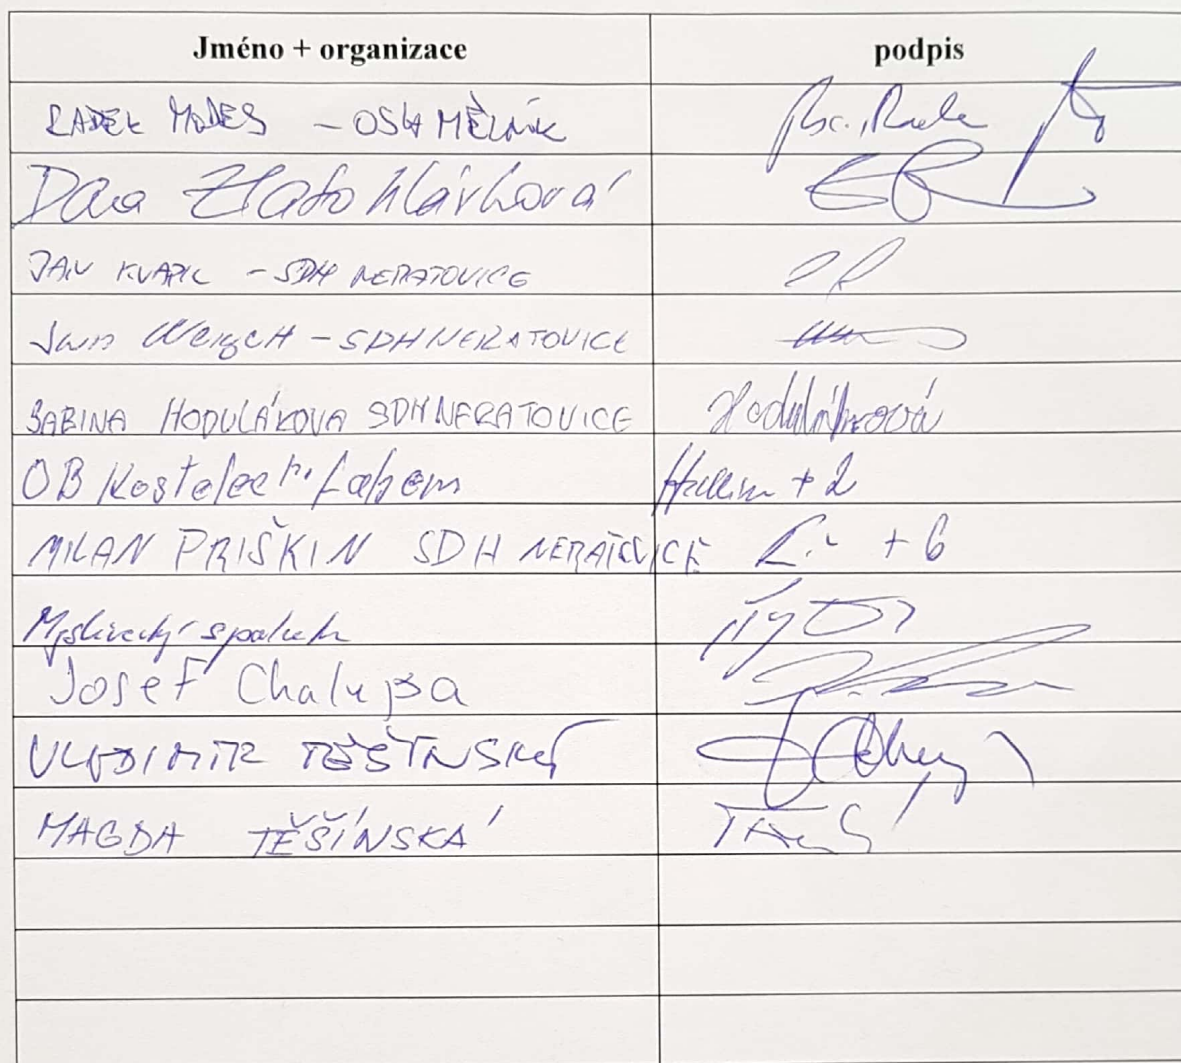 Jméno + organizace podpis
RADEK MODES - OSH MĚLNÍK
Dana Zlatohlávková
JAN KVAPIL - SDH NERATOVICE
Jan Weigelt - SDH NERATOVICE
SABINA HODULÁKOVA SDH NERATOVICE Hoduláková
OB Kostelec n. Labem + 2
MILAN PRIŠKIN SDH NERATOVICE + 6
Myslivecký spolek
Josef Chalupa
VLADIMIR TĚŠÍNSKÝ
MAGDA TĚŠÍNSKÁ